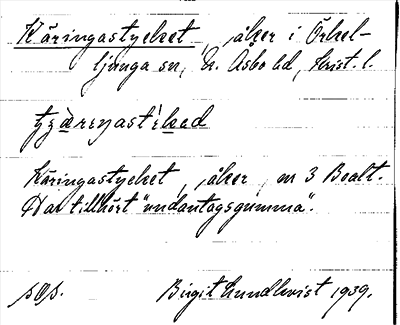 Käringastycket, åker i Örkel-
ljunga sn, N. Åsbo hd, Krist. l.
Käringastycket, åker, nr 3 Boalt.
Har tillhört "undantagsgumma".
Birgit Lundkvist 1939.